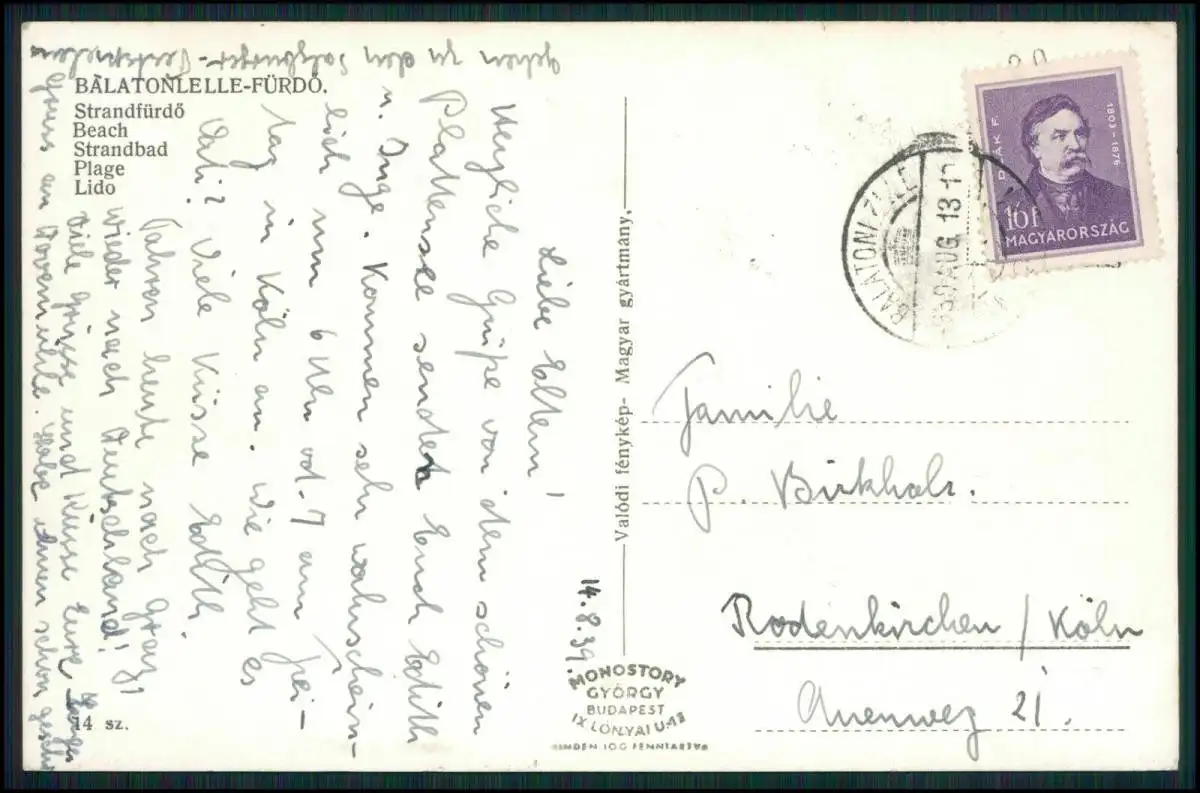 BALATONLELLE-FÜRDŐ.
Strandfürdő
Beach
Strandbad
Plage
Lido
14.8.39.
Liebe Eltern!
Herzliche Grüße von dem schönen
Plattensee sendet Euch Edith
u. Inge. Kommen sehr wahrschein-
lich um 6 Uhr od. 7 am Frei-
tag in Köln an. Wie geht es
Viele Küsse Edith.
Fahren heute nach Graz,
wieder nach Deutschland!
Viele Grüsse und Küsse Eure
Gruss an Habe schon
gehen zu den
14 sz.
Valódi fénykép- Magyar gyártmány.
MONOSTORY
GYÖRGY
BUDAPEST
IX. LÓNYAI U. 48
MINDEN JOG FENNTARTVA
DEÁK F. 1803-1876
16f
MAGYARORSZÁG
AUG. 13
Familie
P. Birkholz.
Rodenkirchen / Köln
Auenweg 21.